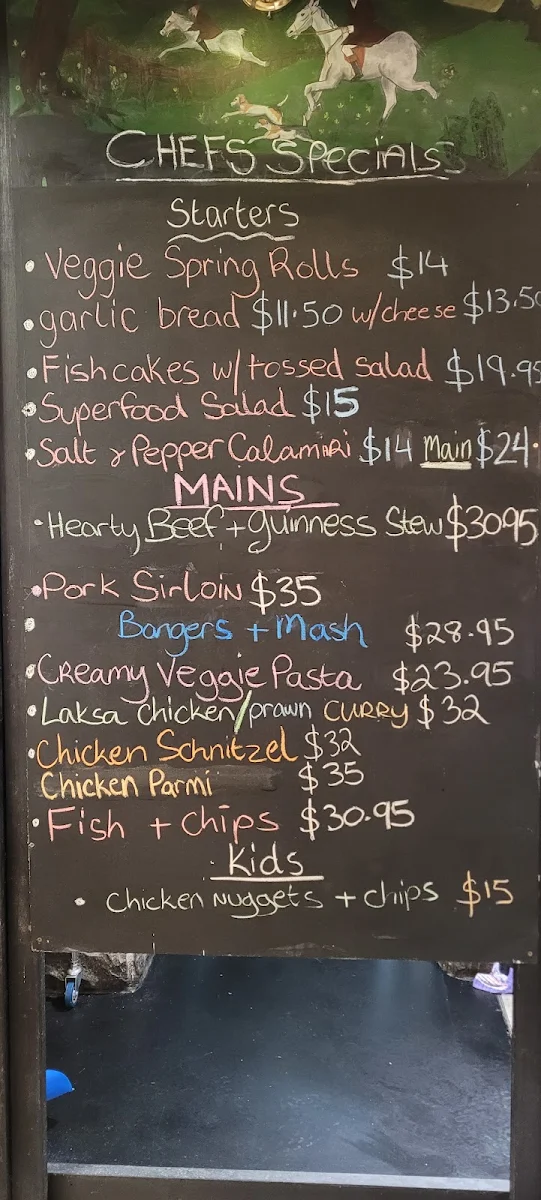 CHEFS SPecIAls
Starters
• Veggie Spring Rolls $14
• garlic bread $11.50 w/cheese $13.50
• Fishcakes w/tossed salad $19.95
• Superfood Salad $15
• Salt & Pepper Calamari $14 Main $24.
MAINS
• Hearty Beef + guinness Stew $3095
• Pork Sirloin $35
• Bangers + Mash $28.95
• Creamy Veggie Pasta $23.95
• Laksa chicken/prawn CURRY $32
• Chicken Schnitzel $32
Chicken Parmi $35
• Fish + chips $30.95
Kids
• Chicken Nuggets + chips $15